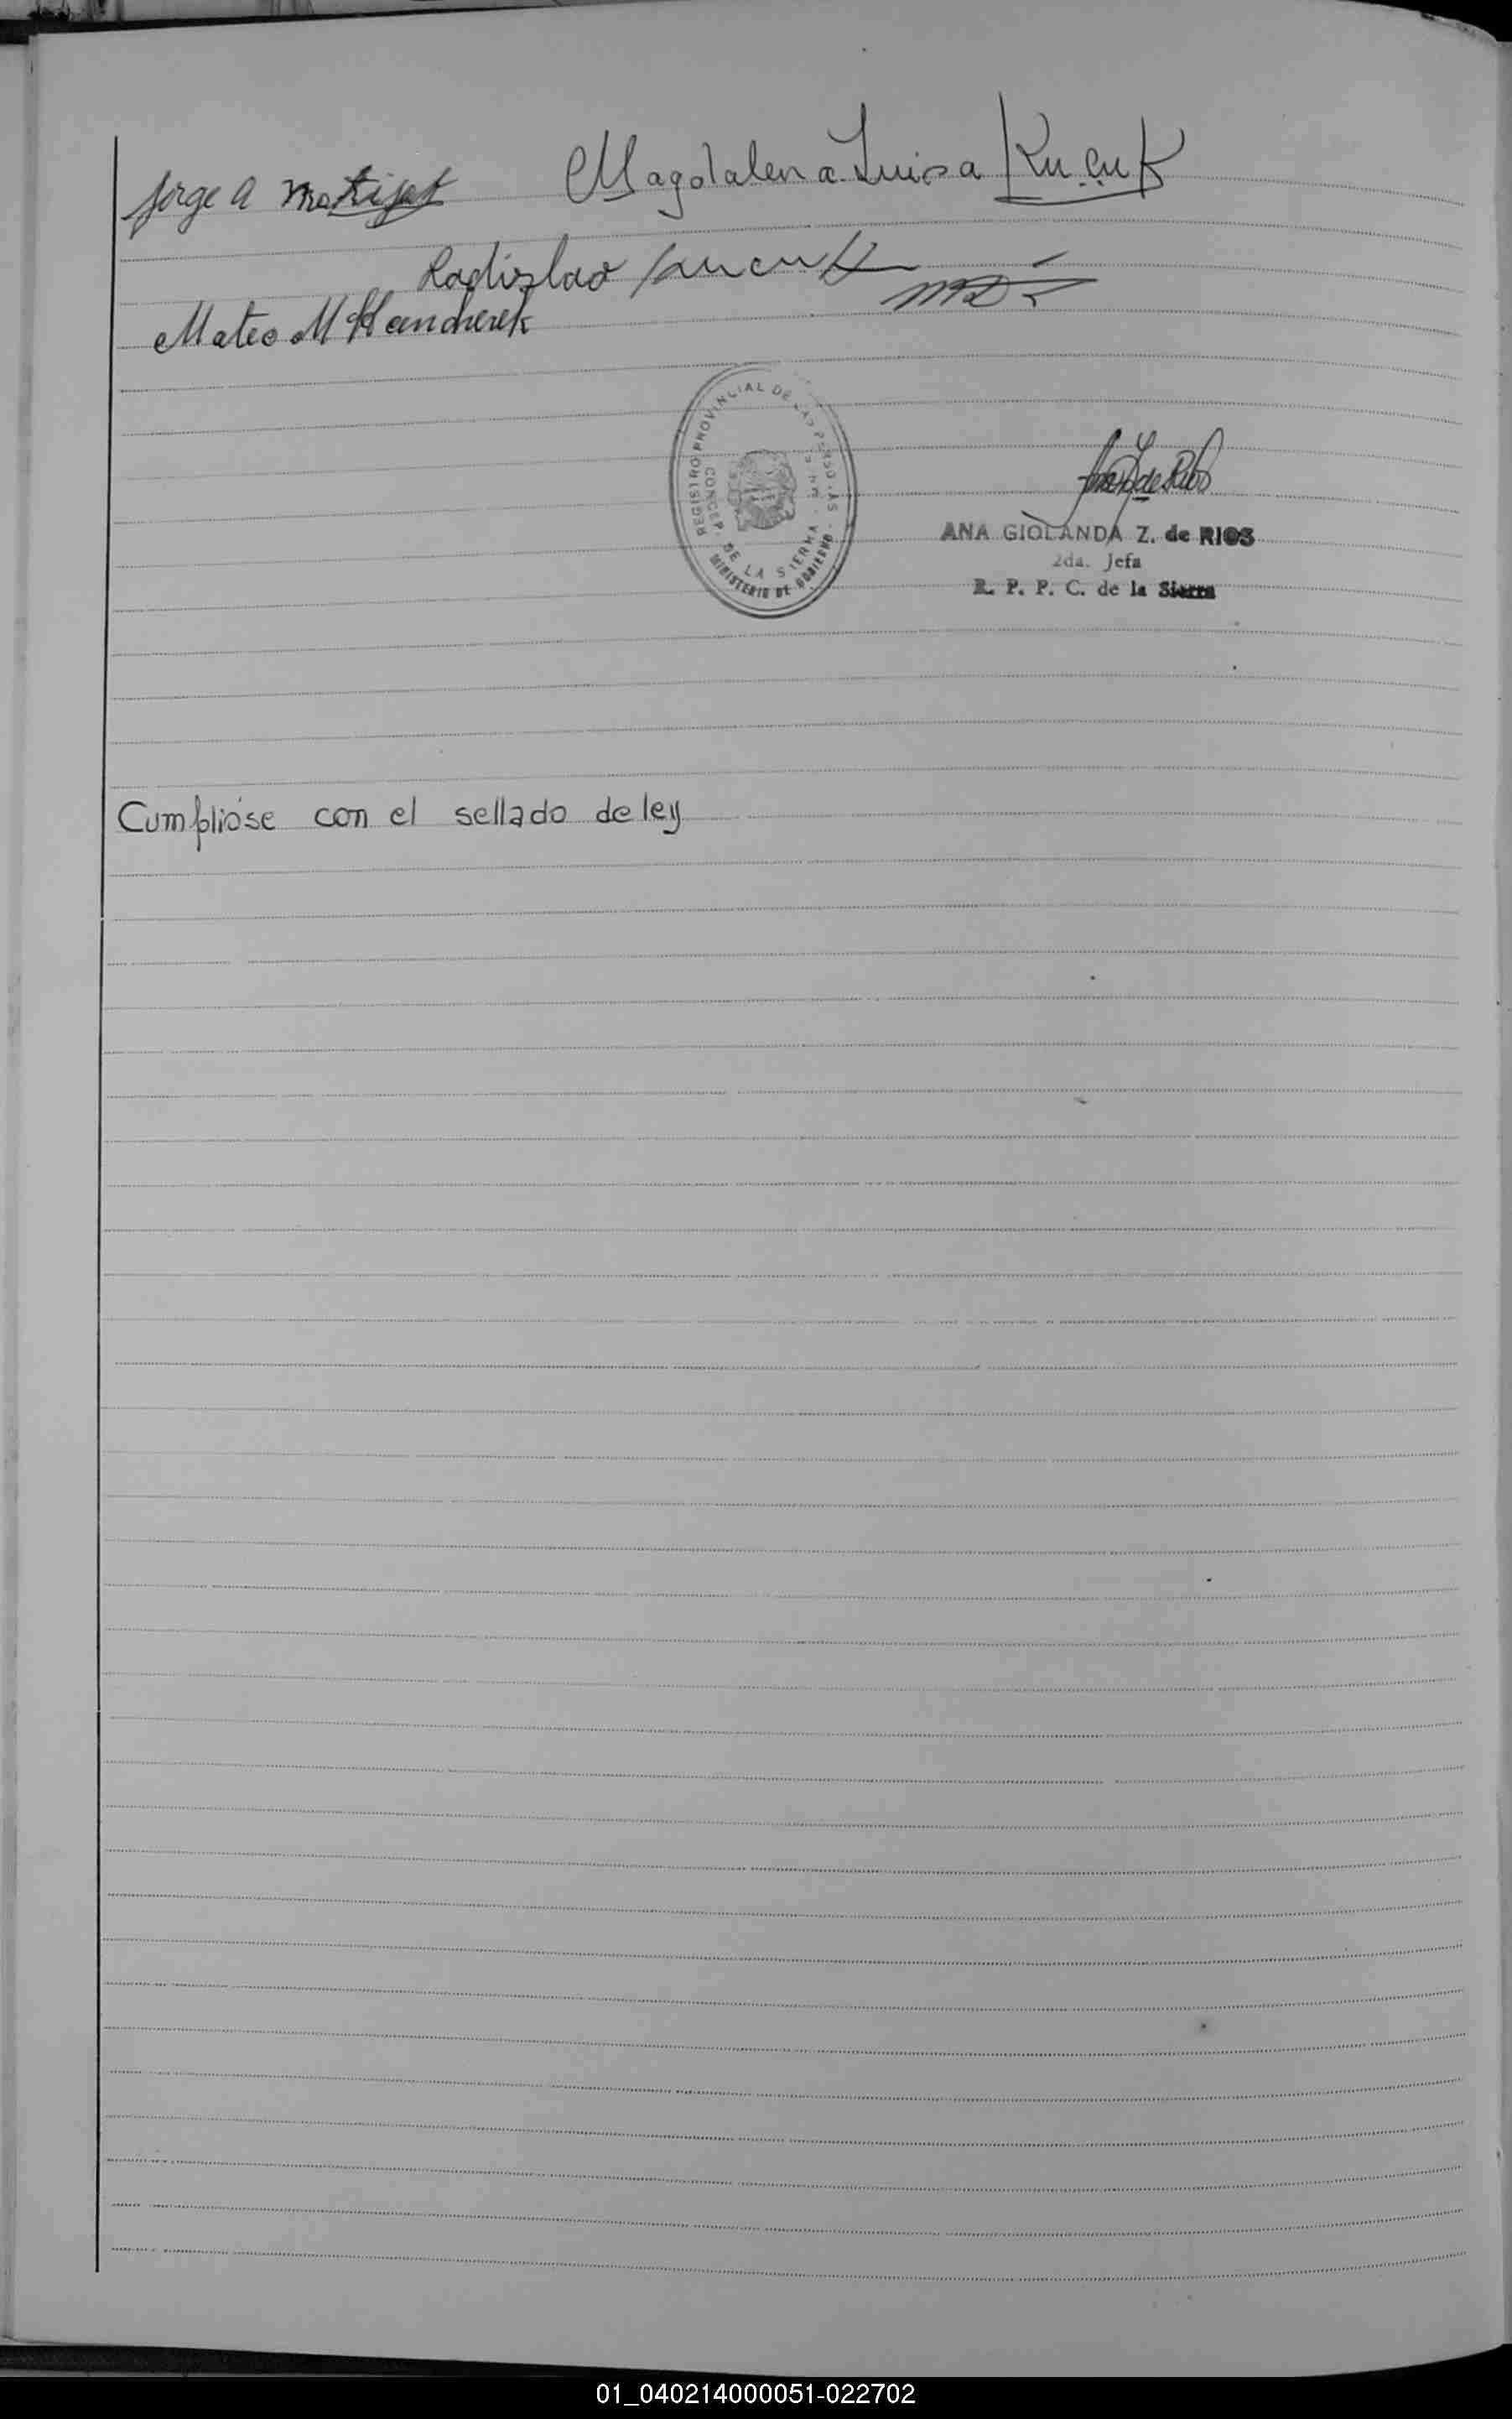 Jorge A Magdalena Luisa Kucuk
Ladislao Kucuk
Mateo M
REGISTRO PROVINCIAL DE LAS PERSONAS
CONCEP. DE LA SIERRA
MINISTERIO DE GOBIERNO
ANA GIOLANDA Z. de RIOS
2da. Jefa
R. P. P. C. de la Sierra
Cumplióse con el sellado de ley
01_040214000051-022702